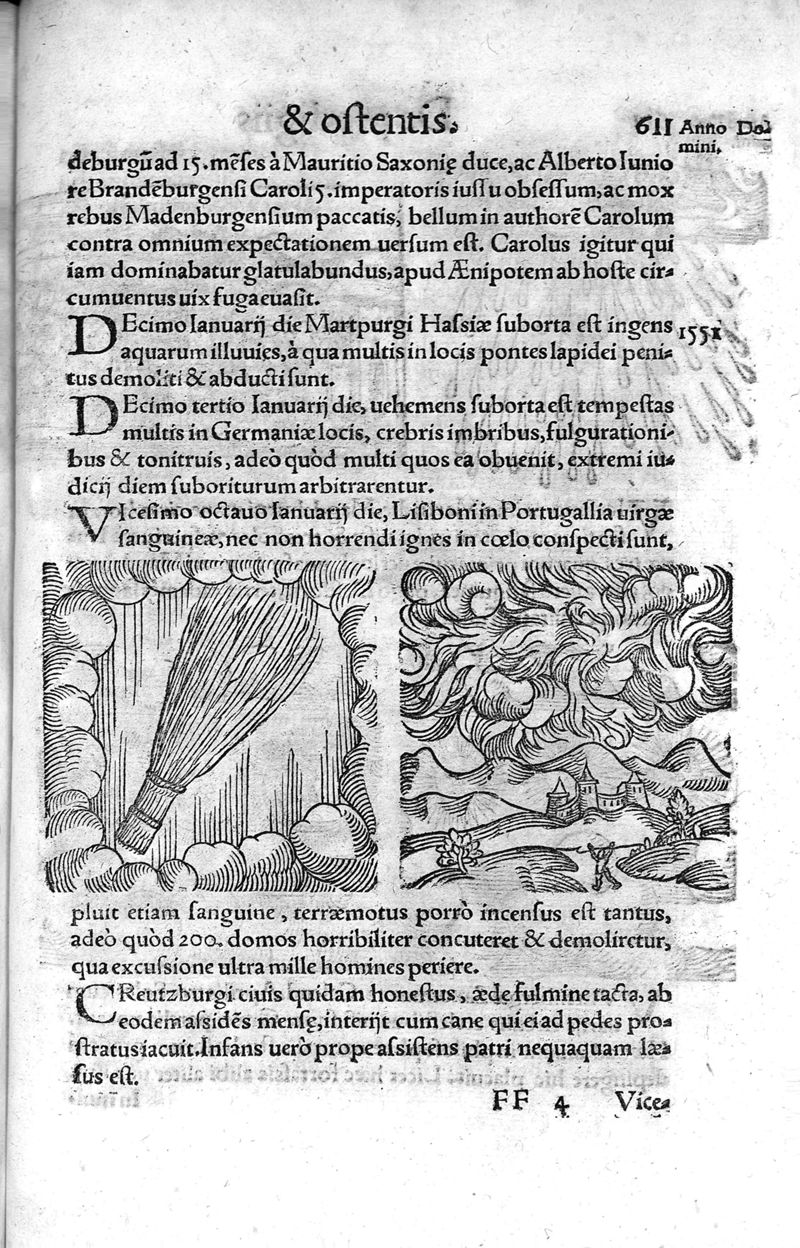 & oſtentis. 611 Anno Do⸗
mini,
deburgũ ad 15. mẽſes à Mauritio Saxonię duce, ac Alberto Iunio
re Brandẽburgenſi Caroli 5. imperatoris iuſſu obſeſſum, ac mox
rebus Madenburgenſium paccatis, bellum in authorẽ Carolum
contra omnium expectationem uerſum eſt. Carolus igitur qui
iam dominabatur glatulabundus, apud Ænipotem ab hoſte cir⸗
cumuentus uix fuga euaſit.
DEcimo Ianuarij die Martpurgi Haſſiæ ſuborta eſt ingens 1551
aquarum illuuies, à qua multis in locis pontes lapidei peni⸗
tus demoliti & abducti ſunt.
DEcimo tertio Ianuarij die, uehemens ſuborta eſt tempeſtas
multis in Germaniæ locis, crebris imbribus, fulgurationi⸗
bus & tonitruis, adeò quòd multi quos ea obuenit, extremi iu⸗
dicij diem ſuboriturum arbitrarentur.
VIceſimo octauo Ianuarij die, Liſiboni in Portugallia uirgæ
ſanguineæ, nec non horrendi ignes in cœlo conſpecti ſunt,
pluit etiam ſanguine, terræmotus porrò incenſus eſt tantus,
adeò quòd 200. domos horribiliter concuteret & demoliretur,
qua excuſſione ultra mille homines periere.
CReutzburgi ciuis quidam honeſtus, æde fulmine tacta, ab
eodem aſsidẽs menſę, interijt cum cane qui ei ad pedes pro⸗
ſtratus iacuit. Infans uerò prope aſsiſtens patri nequaquam læ⸗
ſus eſt.
FF 4 Vice⸗